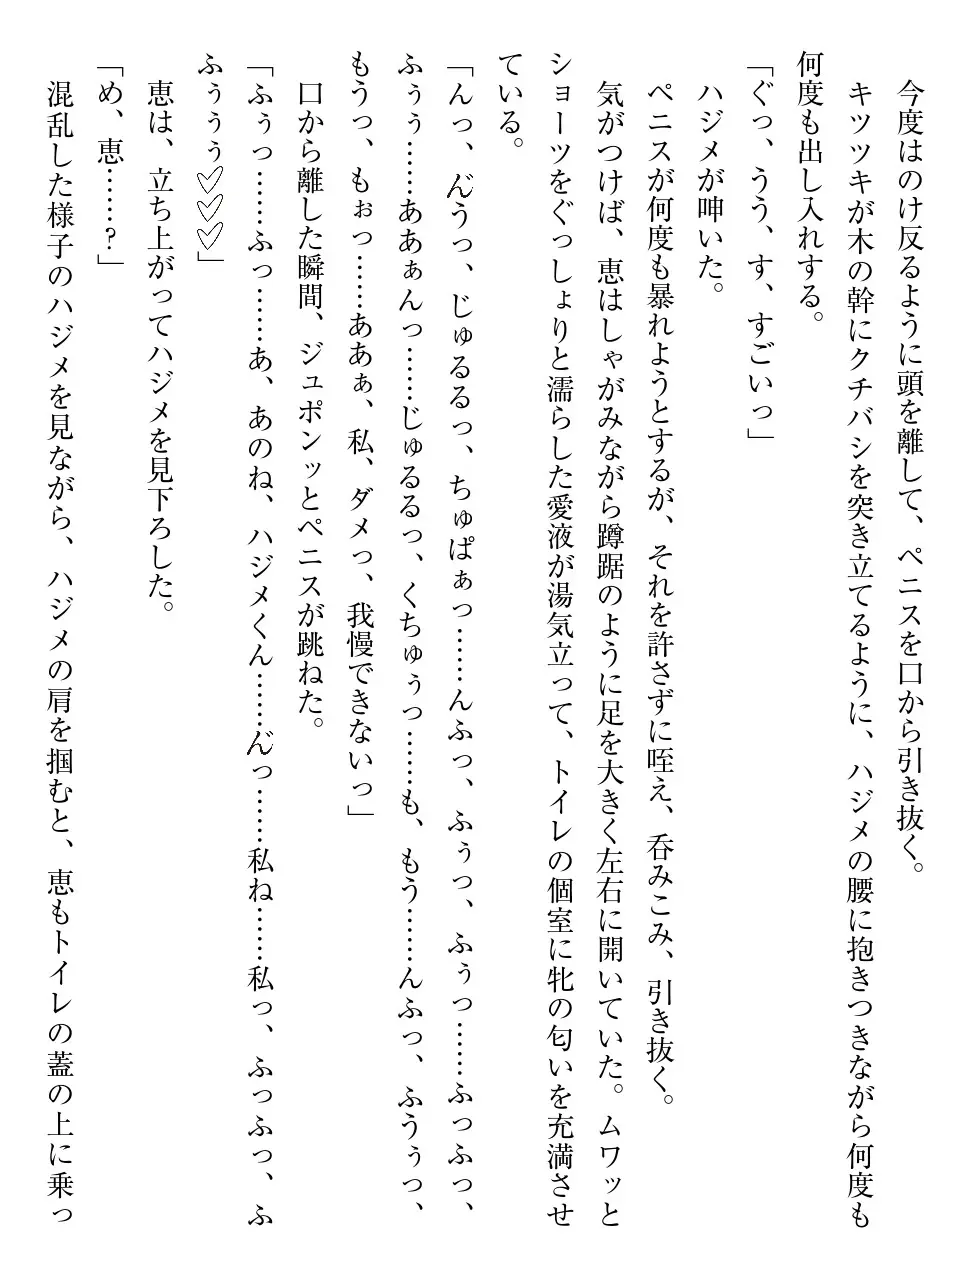 今度はのけ反るように頭を離して、ペニスを口から引き抜く。
キツツキが木の幹にクチバシを突き立てるように、ハジメの腰に抱きつきながら何度も
何度も出し入れする。
「ぐっ、うう、す、すごいっ」
ハジメが呻いた。
ペニスが何度も暴れようとするが、それを許さずに咥え、呑みこみ、引き抜く。
気がつけば、恵はしゃがみながら蹲踞のように足を大きく左右に開いていた。ムワッと
ショーツをぐっしょりと濡らした愛液が湯気立って、トイレの個室に牝の匂いを充満させ
ている。
「んっ、ん゛うっ、じゅるるっ、ちゅぱぁっ……んふっ、ふぅっ、ふぅっ……ふっふっ、
ふぅぅ……あぁぁんっ……じゅるるっ、くちゅぅっ……も、もう……んふっ、ふうぅっ、
もうっ、もぉっ……ああぁ、私、ダメっ、我慢できないっ」
口から離した瞬間、ジュポンッとペニスが跳ねた。
「ふぅっ……ふっ……あ、あのね、ハジメくん……ん゛っ……私ね……私っ、ふっふっ、ふ
ふぅぅぅ♡♡♡」
恵は、立ち上がってハジメを見下ろした。
「め、恵……？」
混乱した様子のハジメを見ながら、ハジメの肩を掴むと、恵もトイレの蓋の上に乗っ